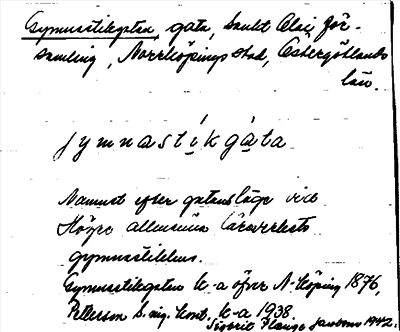 Gymnastikgatan, gata, Sankt Olai för-
samling, Norrköpings stad, Östergötlands
län.
jymnastikgata
Namnet efter gatans läge vid
Högre allmänna läroverkets
gymnastikhus.
Gymnastikgatan k-a öfver N-köping 1876,
Pettersson k-a 1938
Jacobsson 1942.